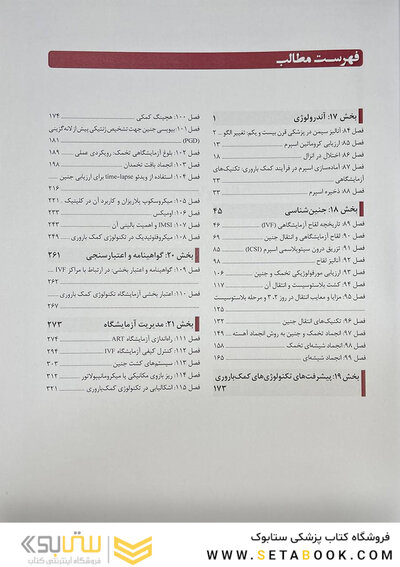 فهرست مطالب
بخش ۱۷: آندرولوژی ۱
فصل ۸۴: آنالیز سیمن در پزشکی قرن بیست و یکم: تغییر الگو ۲
فصل ۸۵: ارزیابی کروماتین اسپرم ۱۳
فصل ۸۶: اختلال در انزال ۱۸
فصل ۸۷: آماده‌سازی اسپرم در فرآیند کمک باروری: تکنیک‌های
آزمایشگاهی ۲۳
فصل ۸۸: ذخیره اسپرم ۳۳
بخش ۱۸: جنین‌شناسی ۴۵
فصل ۸۹: تاریخچه لقاح آزمایشگاهی (IVF) ۴۶
فصل ۹۰: لقاح آزمایشگاهی و انتقال جنین ۶۹
فصل ۹۱: تزریق درون سیتوپلاسمی اسپرم (ICSI) ۸۵
فصل ۹۲: آنالیز لقاح ۹۸
فصل ۹۳: ارزیابی مورفولوژیکی تخمک و جنین ۱۰۶
فصل ۹۴: کشت بلاستوسیست و انتقال آن ۱۱۷
فصل ۹۵: مزایا و معایب انتقال در روز ۲،۳ و مرحله بلاستوسیست
۱۲۵
فصل ۹۶: تکنیک‌های انتقال جنین ۱۳۲
فصل ۹۷: انجماد تخمک و جنین به روش انجماد آهسته ۱۴۹
فصل ۹۸: انجماد شیشه‌ای تخمک ۱۵۸
فصل ۹۹: انجماد شیشه‌ای ۱۶۵
بخش ۱۹: پیشرفت‌های تکنولوژی‌های کمک‌باروری
۱۷۳
فصل ۱۰۰: هچینگ کمکی ۱۷۴
فصل ۱۰۱: بیوپسی جنین جهت تشخیص ژنتیکی پیش از لانه‌گزینی
(PGD) ۱۸۱
فصل ۱۰۲: بلوغ آزمایشگاهی تخمک: رویکردی عملی ۱۸۹
فصل ۱۰۳: انجماد بافت تخمدان ۱۹۸
فصل ۱۰۴: استفاده از ویدئو time-lapse برای ارزیابی جنین
۲۱۶
فصل ۱۰۵: میکروسکوپ پلاریزان و کاربرد آن در کلینیک ۲۲۱
فصل ۱۰۶: اومیکس ۲۳۳
فصل ۱۰۷: IMSI و اهمیت بالینی آن ۲۴۳
فصل ۱۰۸: میکروفلوئیدیک در تکنولوژی کمک باروری ۲۴۹
بخش ۲۰: گواهینامه و اعتبارسنجی ۲۶۱
فصل ۱۰۹: گواهینامه و اعتبار بخشی: در ارتباط با مراکز IVF
۲۶۲
فصل ۱۱۰: اعتبار بخشی آزمایشگاه تکنولوژی کمک باروری
۲۶۷
بخش ۲۱: مدیریت آزمایشگاه ۲۷۳
فصل ۱۱۱: راه‌اندازی آزمایشگاه ART ۲۷۴
فصل ۱۱۲: کنترل کیفی آزمایشگاه IVF ۲۹۴
فصل ۱۱۳: سیستم‌های کشت جنین ۳۰۳
فصل ۱۱۴: ریز بازوی مکانیکی یا میکرومانیپولاتور ۳۱۲
فصل ۱۱۵: اشکالیابی در تکنولوژی کمک‌باروری ۳۲۱
فروشگاه کتاب پزشکی ستابوک
WWW.SETABOOK.COM
ستابوک
فروشگاه اینترنتی کتاب